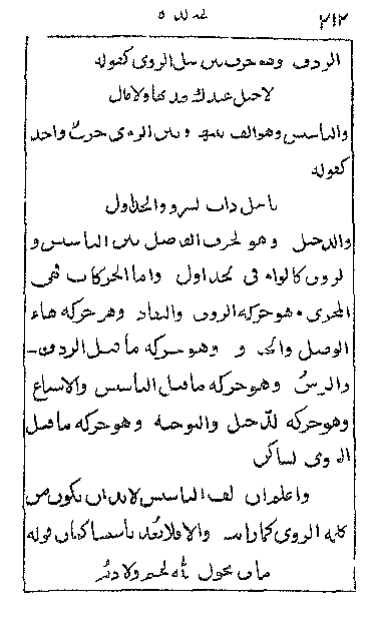 ٣١٢
الردف وهو حرف لين قبل الروى كقوله
لا خيل عندك تهديها ولا مال
والتاسيس وهو الف بينه وبين الروى حرف واحد
كقوله
والدخيل وهو الحرف الفاصل بين التاسيس و
الروى كالواو فى الجداول واما الحركات فهى
المجرى وهو حركة الروى والنفاذ وهو حركة هاء
الوصل والحذو وهو حركة ما قبل الردف
والرس وهو حركة ما قبل التاسيس والاشباع
وهو حركة الدخيل والتوجيه وهو حركة ما قبل
الروى الساكن
واعلم ان الف التاسيس لا بد ان يكون من
كلمة الروى كما رايت والا فلا تعد تاسيسا كما فى قوله